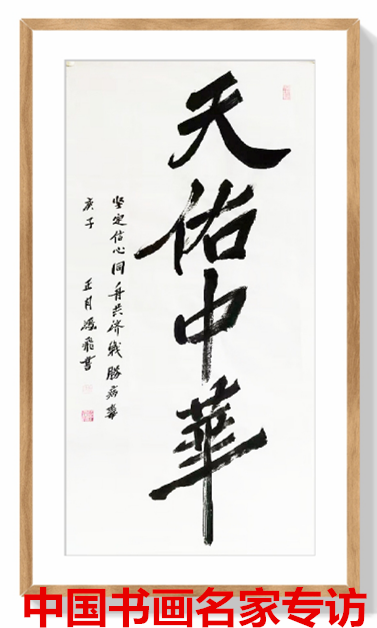 天佑中華
坚定信心同舟共济战勝病毒
庚子 正月冯飛書
中国书画名家专访